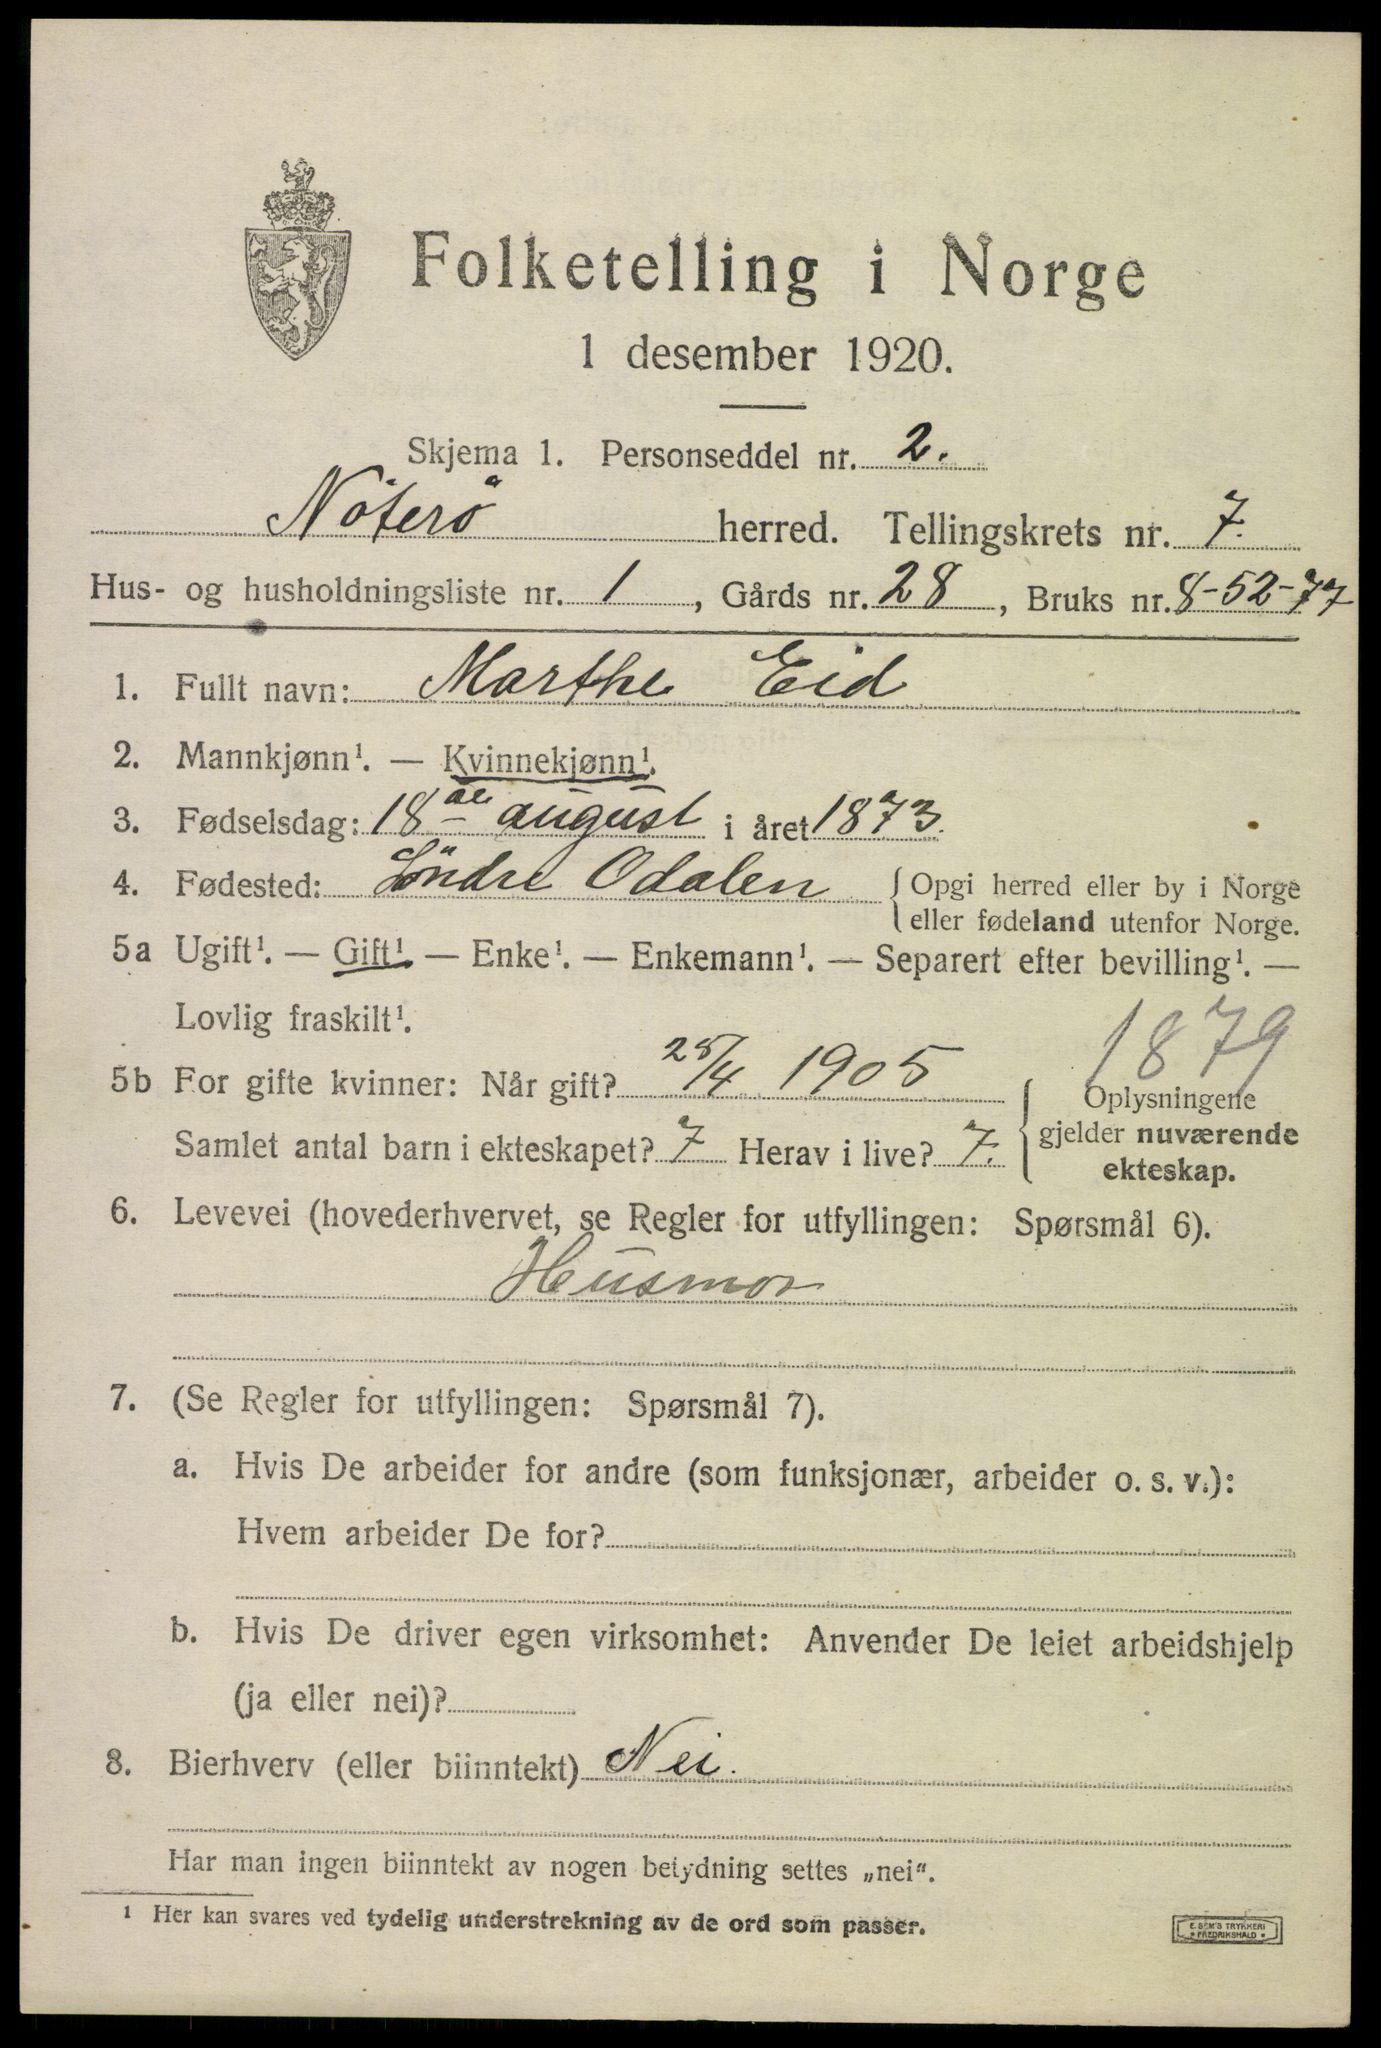 Folketelling i Norge
1 desember 1920.
Skjema 1. Personseddel nr. 2.
Nöterö herred. Tellingskrets nr. 7.
Hus- og husholdningsliste nr. 1, Gårds nr. 28, Bruks nr. 8-52-77
1. Fullt navn: Marthe Eid
2. Mannkjønn¹. — Kvinnekjønn¹.
3. Fødselsdag: 18de august i året 1873.
4. Fødested: Söndre Odalen { Opgi herred eller by i Norge
eller fødeland utenfor Norge.
5a Ugift¹. — Gift¹ — Enke¹. — Enkemann¹. — Separert efter bevilling¹. —
Lovlig fraskilt¹.
1879
5b For gifte kvinner: Når gift? 25/4 1905 { Oplysningene
gjelder nuværende
ekteskap.
Samlet antal barn i ekteskapet? 7 Herav i live? 7.
6. Levevei (hovederhvervet, se Regler for utfyllingen: Spørsmål 6).
Husmor
7. (Se Regler for utfyllingen: Spørsmål 7).
a. Hvis De arbeider for andre (som funksjonær, arbeider o. s. v.):
Hvem arbeider De for?
b. Hvis De driver egen virksomhet: Anvender De leiet arbeidshjelp
(ja eller nei)?
8. Bierhverv (eller biinntekt) Nei.
Har man ingen biinntekt av nogen betydning settes „nei“.
1 Her kan svares ved tydelig understrekning av de ord som passer.
E. SEM'S TRYKKERI
* FREDRIKSHALD *